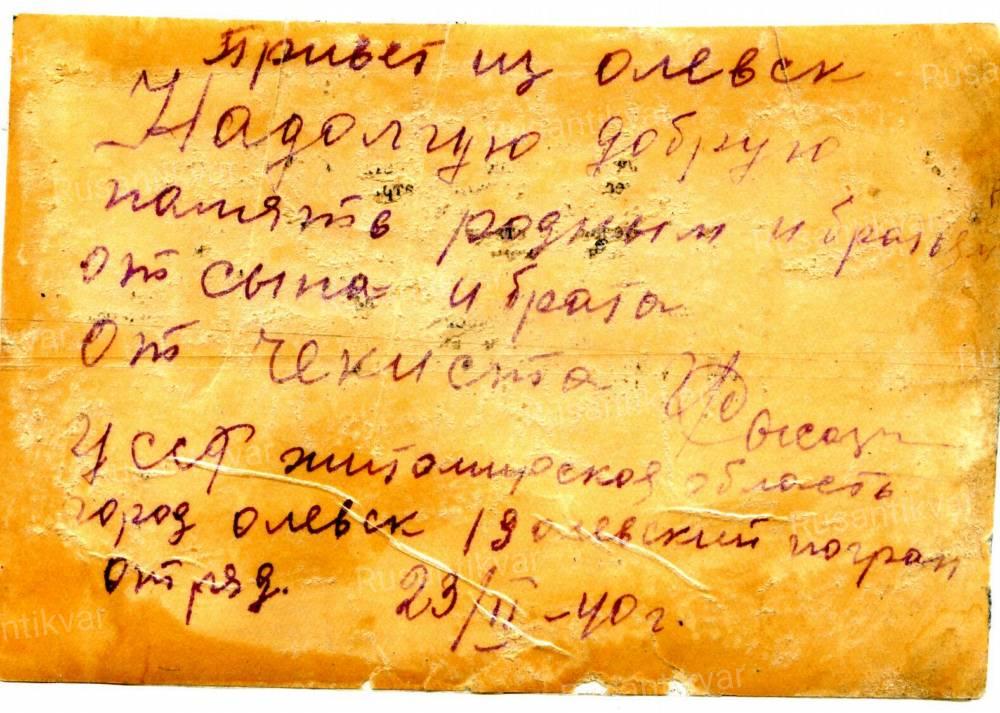 Привет из олевск
Надолгую добрую
памятв родным и братьям
от сына и брата
от чекиста
УССР житомирской область
город олевск 19 олевский погран
отряд. 23/II-40 г.